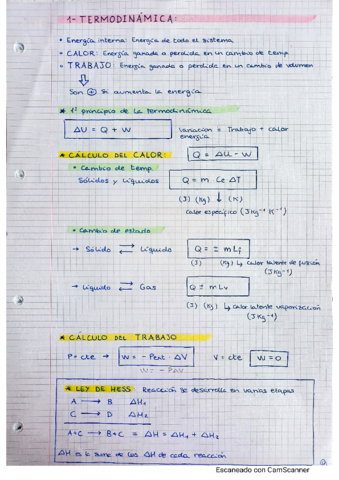 1- TERMODINÁMICA:
• Energía interna: Energía de todo el sistema
• CALOR: Energía ganada o perdida en un cambio de temp
• TRABAJO: Energía ganada o perdida en un cambio de volumen
⇓
Son ⊕ si aumenta la energía
* 1º principio de la termodinámica
ΔU = Q + W
variación = Trabajo + calor
energía
* CÁLCULO DEL CALOR:
Q = ΔU - W
• Cambio de temp.
Sólidos y líquidos
Q = m Ce ΔT
(J) (Kg) ↓ (K)
calor específico (J Kg⁻¹ K⁻¹)
• Cambio de estado
→ Sólido ⇄ Líquido
Q = ± m Lf
(J) (Kg) ↳ calor latente de fusión
(J Kg⁻¹)
→ Líquido ⇄ Gas
Q = ± m Lv
(J) (KS) ↳ calor latente vaporización
(J Kg⁻¹)
* CÁLCULO DEL TRABAJO
P = cte → W = - Pext · ΔV
V = cte W = 0
W = - PΔV
* LEY DE HESS Reacción se desarrolla en varias etapas
A → B ΔH₁
C → D ΔH₂
A+C → B+C = ΔH = ΔH₁ + ΔH₂
ΔH es la suma de las ΔH de cada reacción
Escaneado con CamScanner